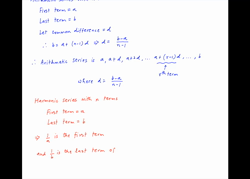 First term = a
Last term = b
Let common difference = d
∴ b = a + (n-1) d ⇒ d = (b-a)/(n-1)
∴ Arithmetic series is a, a+d, a+2d, ... a+(r-1)d, ..., b
rth term
where d = (b-a)/(n-1)
Harmonic series with n terms
First term = a
Last term = b
⇒ 1/a is the first term
and 1/b is the last term of